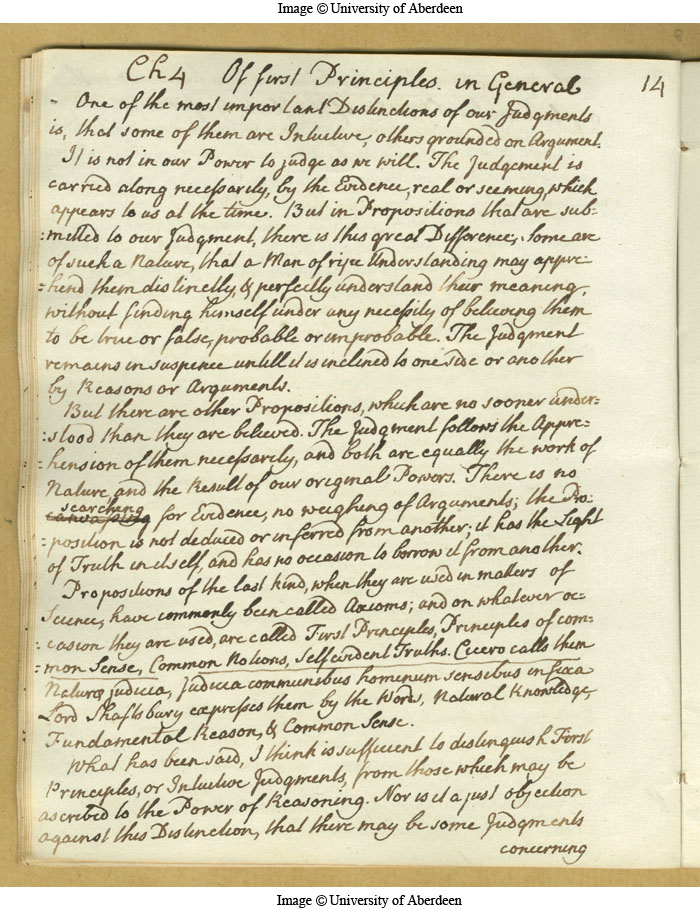 Image © University of Aberdeen
Ch 4 Of first Principles. in General
14
One of the most important Distinctions of our Judgments
is, that some of them are Intuitive, others grounded on Argument.
It is not in our Power to judge as we will. The Judgement is
carried along necessarily, by the Evidence, real or seeming, which
appears to us at the time. But in Propositions that are sub-
:mitted to our Judgment, there is this great Difference; Some are
of such a Nature, that a Man of ripe Understanding may appre-
:hend them distinctly, & perfectly understand their meaning,
without finding himself under any necessity of believing them
to be true or false, probable or improbable. The Judgment
remains in suspence untill it is inclined to one side or another
by Reasons or Arguments.
But there are other Propositions, which are no sooner under-
:stood than they are believed. The Judgment follows the Appre-
:hension of them necessarily, and both are equally the work of
Nature, and the Result of our original Powers. There is no
searching
canvassing for Evidence, no weighing of Arguments; the Pro-
:position is not deduced or inferred from another; it has the Light
of Truth in itself, and has no occasion to borrow it from another.
Propositions of the last kind, when they are used in matters of
Science, have commonly been called Axioms; and on whatever oc-
:casion they are used, are called First Principles, Principles of com-
:mon Sense, Common Notions, Self evident Truths. Cicero calls them
Naturæ judicia, Judicia communibus hominum sensibus infixa
Lord Shaftsbury expresses them by the Words, Natural Knowledge,
Fundamental Reason, & Common Sense.
What has been said, I think is sufficient to distinguish First
Principles, or Intuitive Judgments, from those which may be
ascribed to the Power of Reasoning. Nor is it a just objection
against this Distinction, that there may be some Judgments
concerning
Image © University of Aberdeen